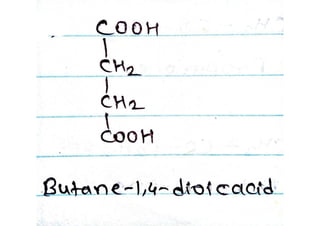 COOH
CH2
CH2
COOH
Butane-1,4-dioicacid